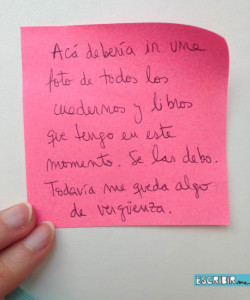 Acá debería ir una
foto de todos los
cuadernos y libros
que tengo en este
momento. Se las debo.
Todavía me queda algo
de vergüenza.
ESCRIBIR.me